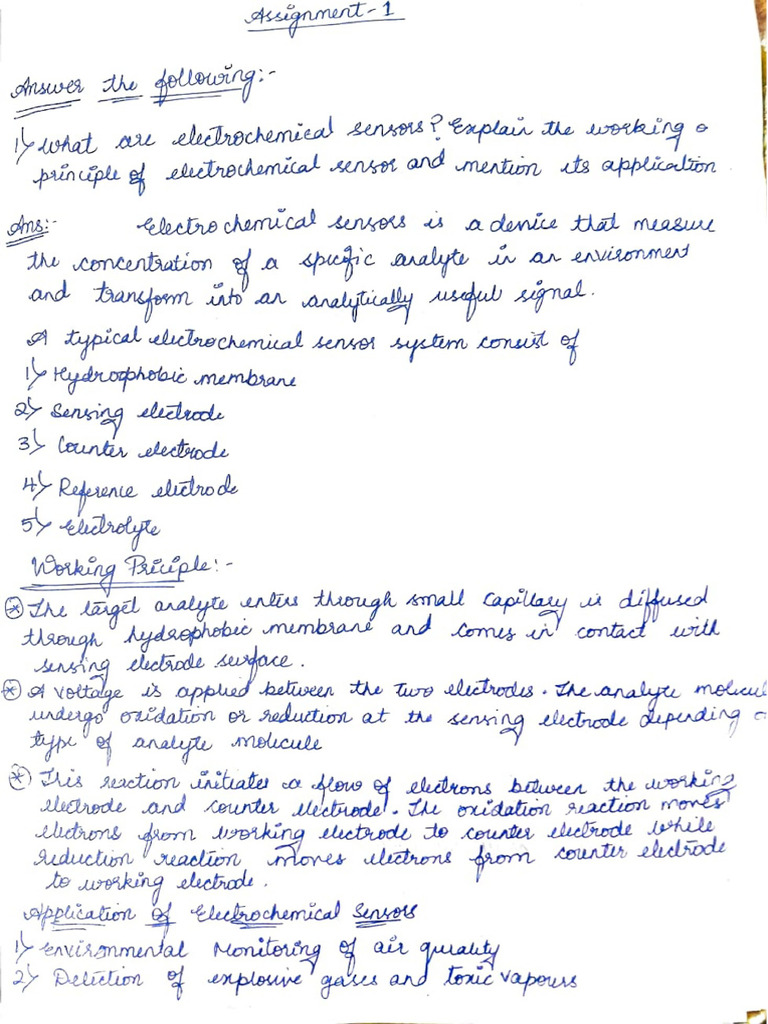 Assignment-1
Answer the following:-
1) What are electrochemical sensors? Explain the working
principle of electrochemical sensor and mention its application
Ans:- Electrochemical sensors is a device that measure
the concentration of a specific analyte in an environment
and transform into an analytically useful signal.
A typical electrochemical sensor system consist of
1) Hydroophobic membrane
2) Sensing electrode
3) Counter electrode
4) Reference electrode
5) Electrolyte
Working Priciple:-
* The target analyte enters through small capillary is diffused
through hydrophobic membrane and comes in contact with
sensing electrode surface.
* A voltage is applied between the two electrodes. The analyte molecul
undergo oxidation or reduction at the sensing electrode depending o
type of analyte molecule
* This reaction initiates a flow of electrons between the working
electrode and counter electrode. The oxidation reaction moves
electrons from working electrode to counter electrode while
reduction reaction moves electrons from counter electrode
to working electrode.
Application of Electrochemical Sensors
1) Environmental Monitoring of air quality
2) Detection of explosive gases and toxic vapours